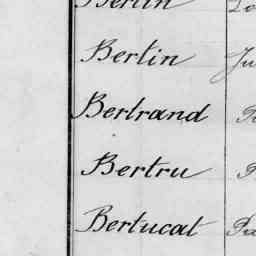 Bertin
Bertin
Bertrand
Bertru
Bertucat